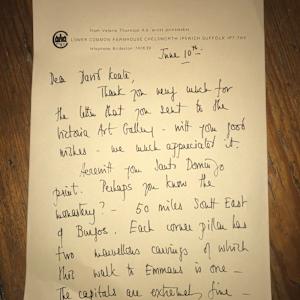 From Valerie Thornton R.E.
LOWER COMMON FARMHOUSE CHELSWORTH IPSWICH SUFFOLK IP7 7HY
Telephone Bildeston 740639
June 10th
Dear David Keate,
Thank you very much for
the letter that you sent to the
Victoria Art Gallery - with your good
wishes - we much appreciated it.
Herewith you Santo Domingo
print. Perhaps you know the
monastery? - 50 miles South East
of Burgos. Each corner pillar has
two marvellous carvings of which
this walk to Emmaus is one -
The capitals are extremely fine -